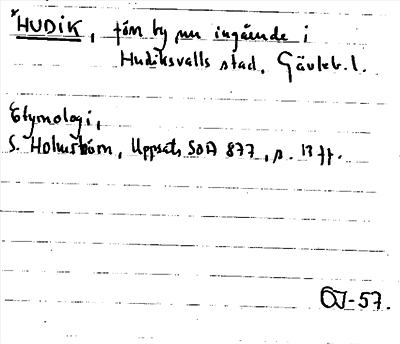 *HUDIK, förr by nu ingående i
Hudiksvalls stad, Gävleb. l.
Etymologi,
S. Holmström, Uppsats SOA 877, s. 13 ff.
OJ-57.